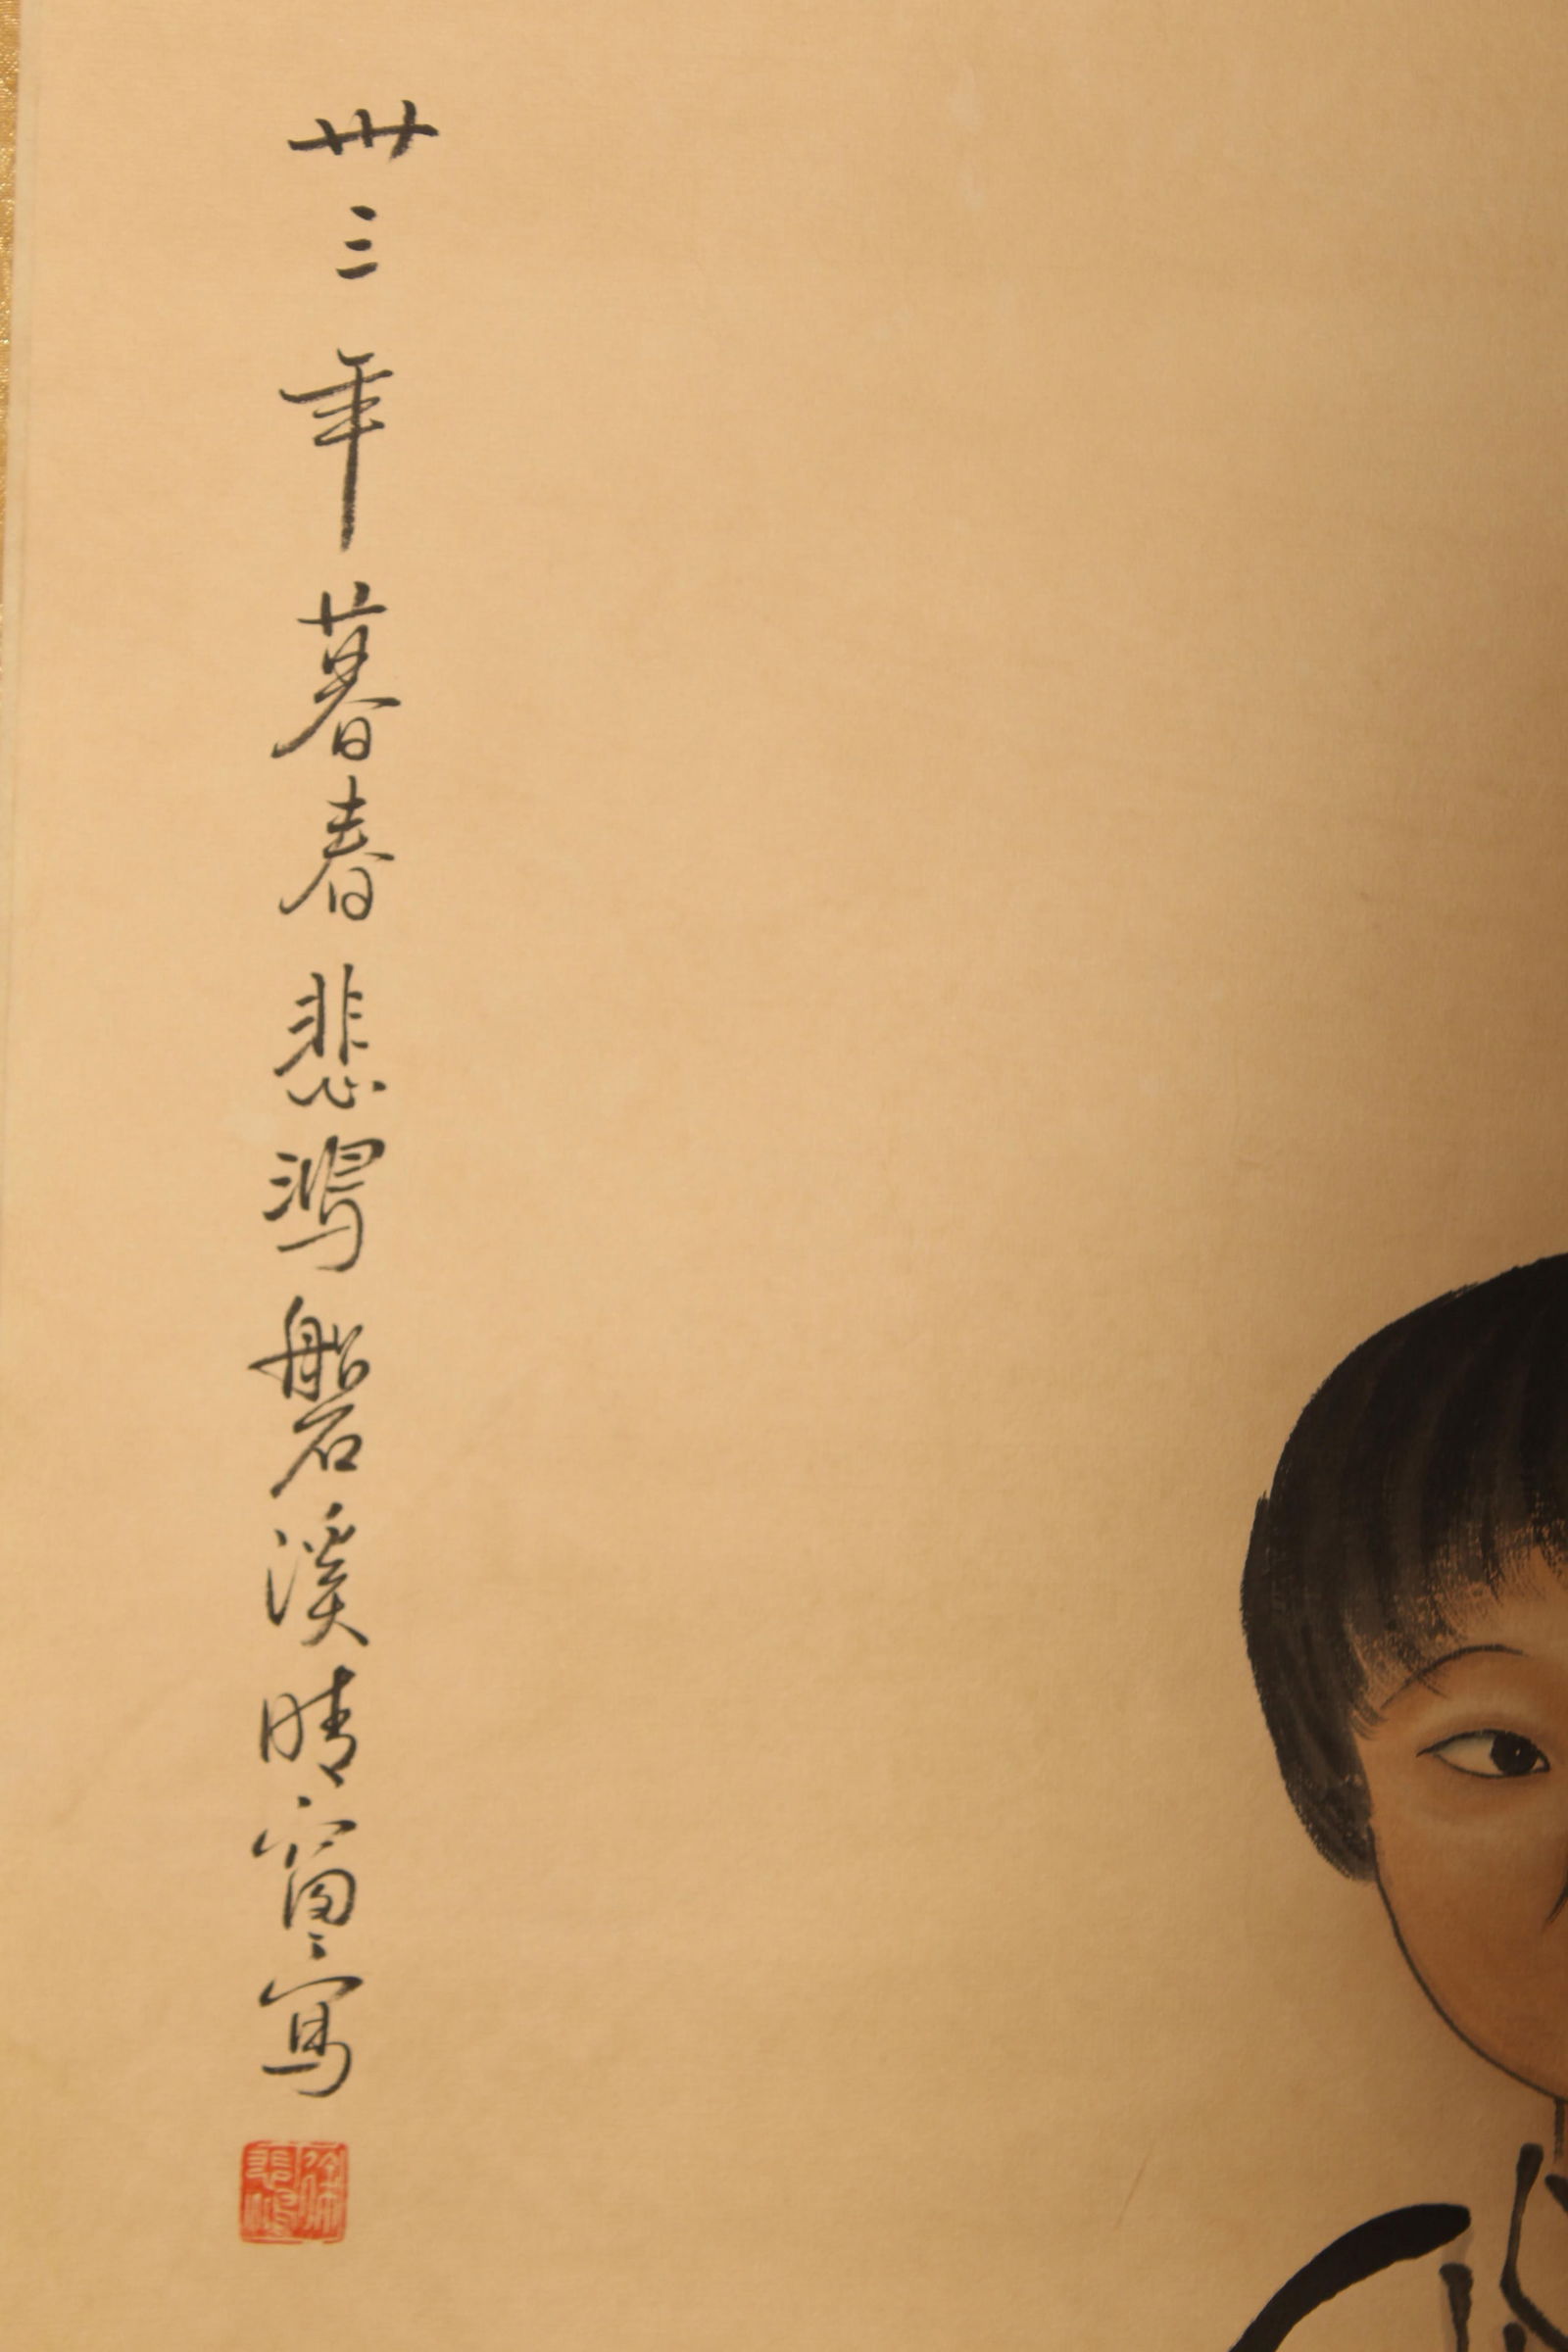 卅三年暮春悲鸿磐溪晴窗写
徐悲鸿